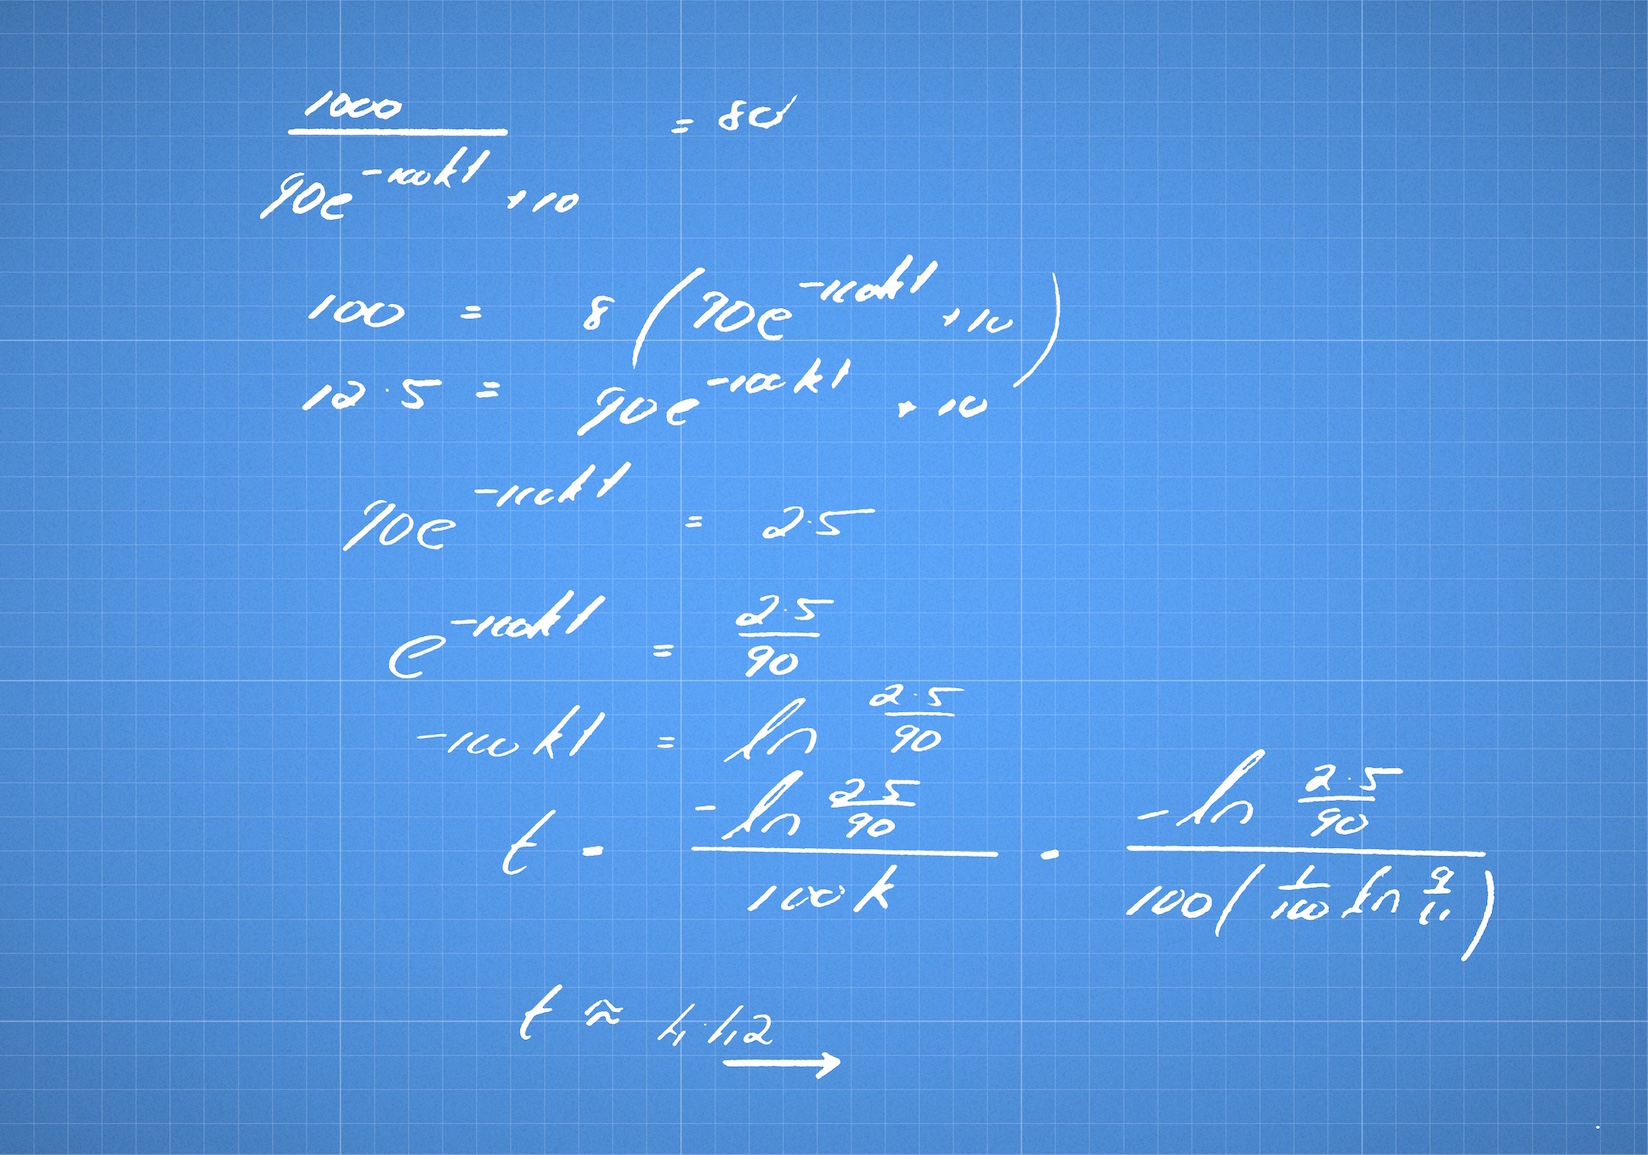 1000/(90e^(-100kt) +10) = 80
100 = 8(90e^(-100kt) +10)
12.5 = 90e^(-100kt) + 10
90e^(-100kt) = 2.5
e^(-100kt) = 2.5/90
-100kt = ln 2.5/90
t = (-ln 2.5/90)/(100k) = (-ln 2.5/90)/(100(1/100 ln 9/4))
t ≈ 4.42 →